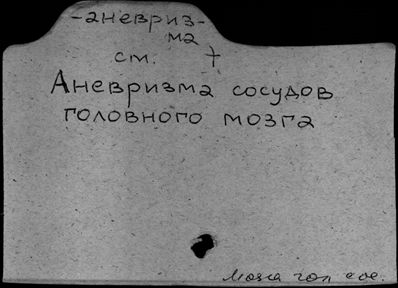 -аневриз-
ма
см. †
Аневризма сосудов
головного мозга
Мозга гол сос.